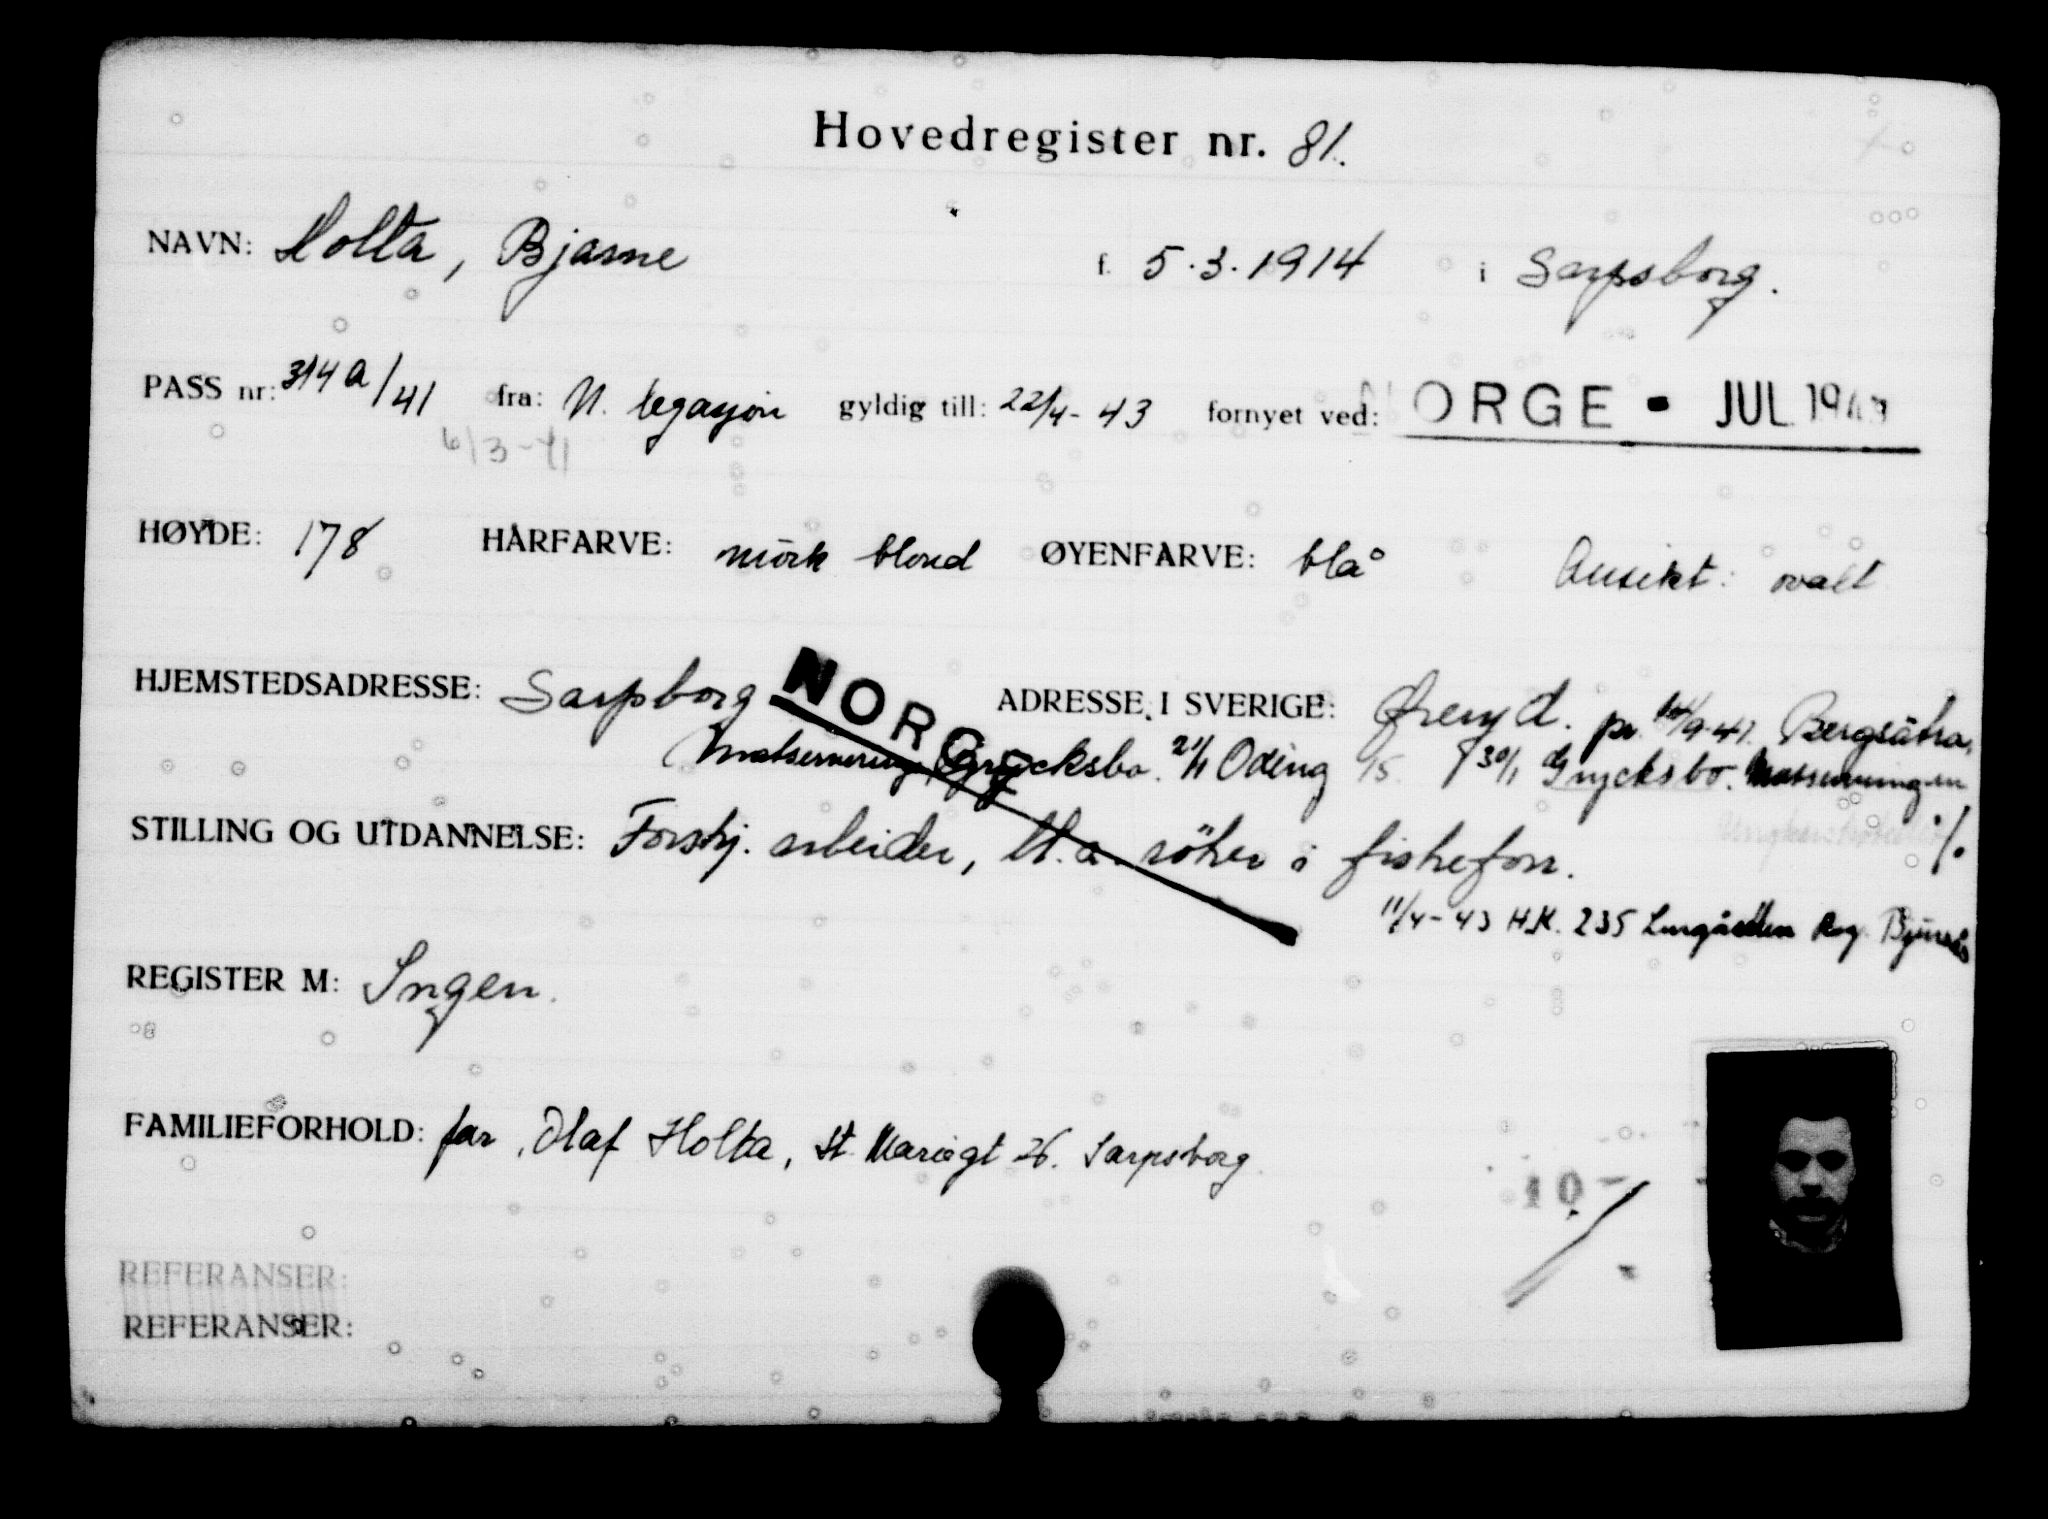 Hovedregister nr. 81.
NAVN: Holta, Bjarne f. 5.3.1914 i Sarpsborg.
PASS nr: 314a/41 fra: N. legasjon gyldig till: 22/4-43 fornyet ved: NORGE - JUL 194
6/3-41
HØYDE: 178 HÅRFARVE: mörk blond ØYENFARVE: blå Ansikt: ovalt
HJEMSTEDSADRESSE: Sarpsborg NORGE ADRESSE I SVERIGE: Øreryd. pr. 9-41. Bergsätra,
Grycksbo. 21/1 Öding 15. 30/1 Grycksbo.
STILLING OG UTDANNELSE: Forskj. arbeider, bl.a. i fiskeforr. %
11/4-43 H.K. 235
REGISTER M: Ingen.
FAMILIEFORHOLD: far, Olaf Holta, St. Mariegt 26. Sarpsborg.
10
REFERANSER:
REFERANSER: